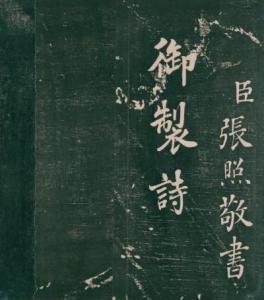 臣張照敬書
御製詩